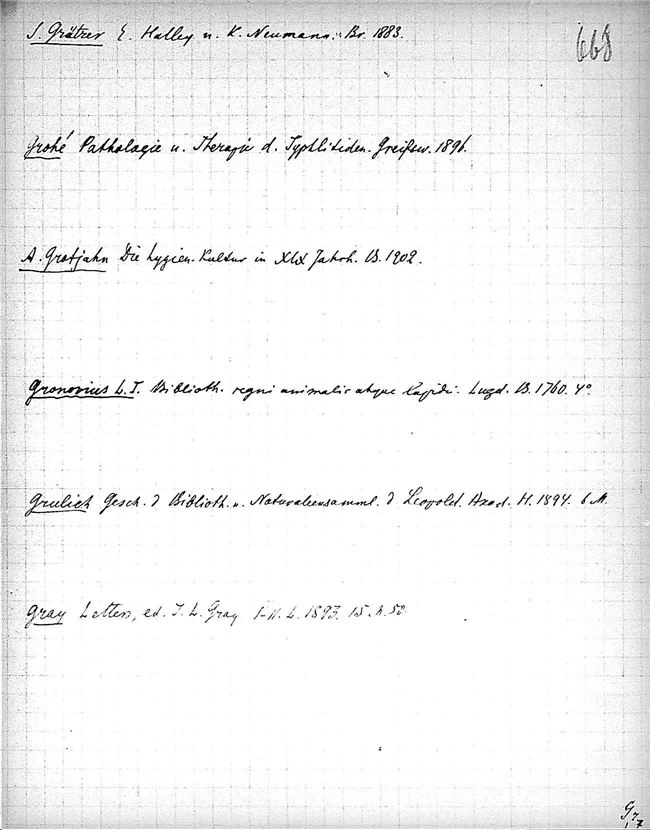 668
J. Grätzer E. Halley u. K. Neumann. Br. 1883.
Grohé Pathologie u. Therapie d. Typhlitiden. Greifsw. 1896.
A. Grotjahn Die hygien. Kultur in XIX Jahrh. B. 1902.
Gronovius L. T. Biblioth. regni animalis atque lapidei. Lugd. B. 1760. 4°.
Grulich Gesch. d Biblioth. u. Naturaliensamml. d Leopold. Akad. H. 1894. 6 M.
Gray Letters, ed. J. L. Gray I-II. L. 1893. 15.